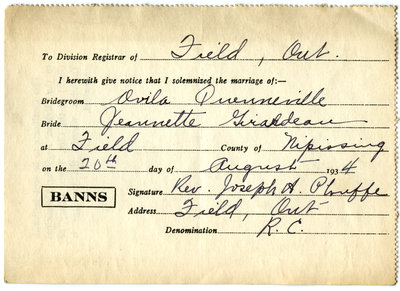 To Division Registrar of Field, Ont.
I herewith give notice that I solemnized the marriage of:—
Bridegroom Ovila Quenneville
Bride Jeannette Giraldeau
at Field County of Nipissing
on the 20th day of August 1934
BANNS Signature Rev. Joseph A. Plouffe
Address Field, Ont
Denomination R.C.